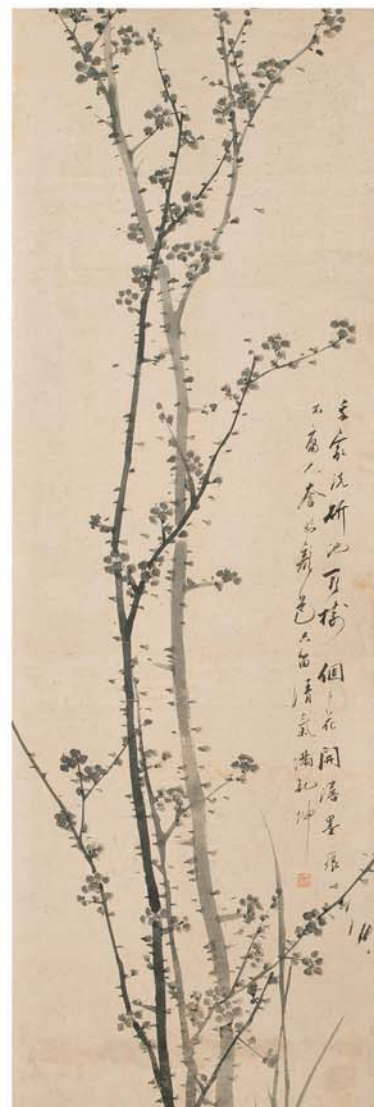 吾家洗研池頭樹個々花開澹墨痕
不人夸好顏色只留清氣滿乾坤